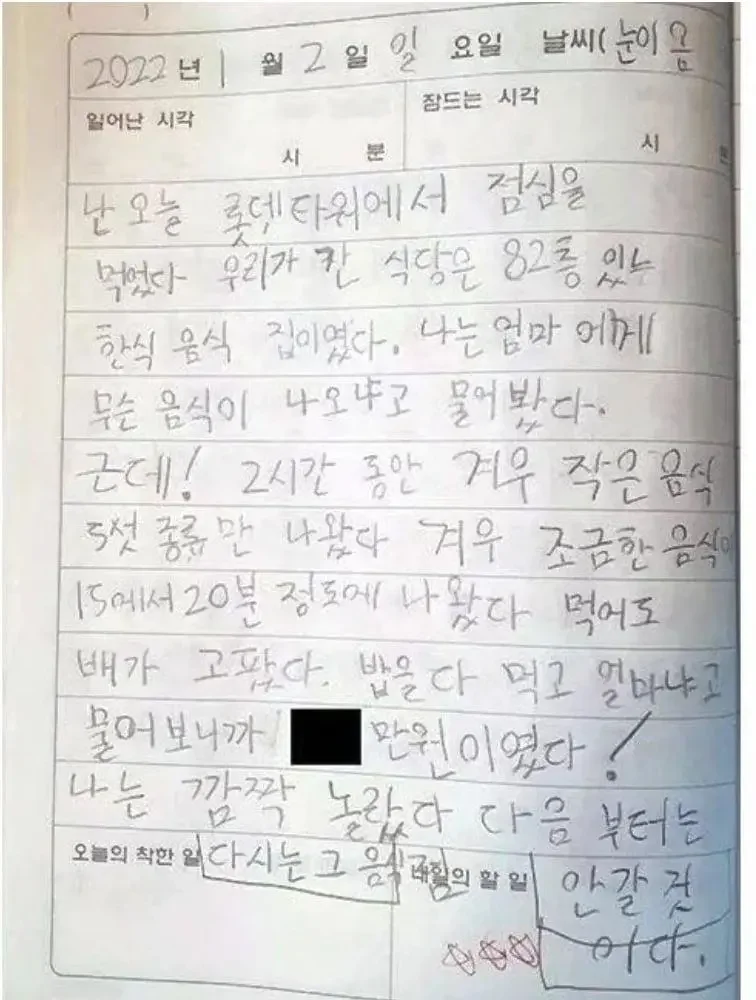 2022년 1월 2일 일요일 날씨(눈이 옴
일어난 시각 시 분
잠드는 시각 시
난 오늘 롯뎃타워에서 점심을
먹었다 우리가 간 식당은 82층 있는
한식 음식 집이였다. 나는 엄마 에게
무슨 음식이 나오냐고 물어 봤다.
근데! 2시간 동안 겨우 작은 음식
5섯 종류만 나왔다 겨우 조금한 음식이
15에서 20분 정도에 나왔다 먹어도
배가 고팠다. 밥을 다 먹고 얼마냐고
물어보니까 만원이였다!
나는 깜짝 놀랐다 다음 부터는
오늘의 착한 일 다시는 그 음식점 내일의 할 일 안갈 것
이다.